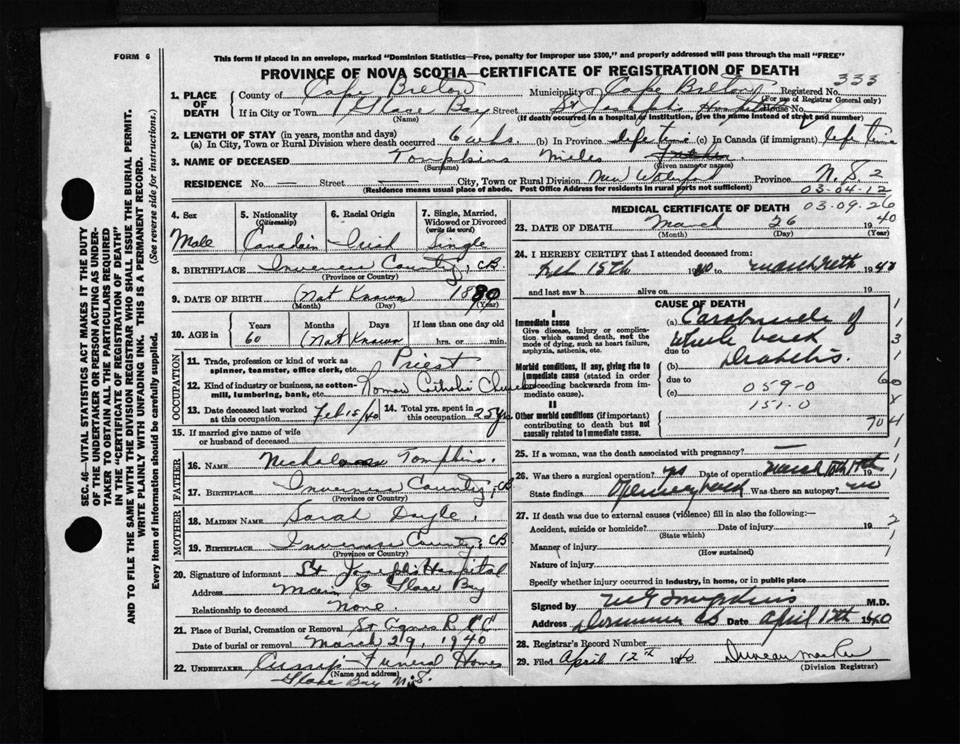 FORM 6
This form if placed in an envelope, marked "Dominion Statistics—Free, penalty for improper use $300," and properly addressed will pass through the mail "FREE"
PROVINCE OF NOVA SCOTIA—CERTIFICATE OF REGISTRATION OF DEATH
333
1. PLACE OF DEATH
County of Cape Breton Municipality of Cape Breton Registered No.
(For use of Registrar General only)
If in City or Town Glace Bay Street St Joseph's Hospital House No.
(Name) (If death occurred in a hospital or institution, give the name instead of street and number)
2. LENGTH OF STAY (in years, months and days)
(a) In City, Town or Rural Division where death occurred 6 wks (b) In Province life time (c) In Canada (if immigrant) life time
3. NAME OF DECEASED Tompkins Miles
(Surname) (Given name or names)
RESIDENCE No. — Street — City, Town or Rural Division New Waterford Province N.S 2
(Residence means usual place of abode. Post Office Address for residents in rural parts not sufficient)
03-04-12
03-09-26
4. Sex
Male
5. Nationality
(Citizenship)
Canadian
6. Racial Origin
Irish
7. Single, Married, Widowed or Divorced
(write the word)
Single
8. BIRTHPLACE Inverness County, CB
(Province or Country)
9. DATE OF BIRTH (Not Known) 1880
(Month) (Day) (Year)
10. AGE in
Years Months Days If less than one day old
60 (Not Known hrs. or min.
OCCUPATION
11. Trade, profession or kind of work as spinner, teamster, office clerk, etc. Priest
12. Kind of industry or business, as cotton-mill, lumbering, bank, etc. Roman Catholic Church
13. Date deceased last worked at this occupation Feb 15/40
14. Total yrs. spent in this occupation 25 yrs
15. If married give name of wife or husband of deceased
FATHER
16. NAME Nicholas Tompkins
17. BIRTHPLACE Inverness County, CB
(Province or Country)
MOTHER
18. MAIDEN NAME Sarah Doyle.
19. BIRTHPLACE Inverness County, CB
(Province or Country)
20. Signature of informant St Joseph's Hospital
Address Main St Glace Bay
Relationship to deceased None.
21. Place of Burial, Cremation or Removal St Agnes R C C
Date of burial or removal March 29, 1940
22. UNDERTAKER Funeral Home
(Name and address)
Glace Bay N.S.
MEDICAL CERTIFICATE OF DEATH
23. DATE OF DEATH March 26 1940
(Month) (Day) (Year)
24. I HEREBY CERTIFY that I attended deceased from:
Feb 15th 1940 to March 26th 1940
and last saw h alive on 19
CAUSE OF DEATH
I
Immediate cause
Give disease, injury or complication which caused death, not the mode of dying, such as heart failure, asphyxia, asthenia, etc.
(a) Carbuncle of
whole neck
due to
Morbid conditions, if any, giving rise to immediate cause (stated in order proceeding backwards from immediate).
(b) Diabetes.
due to
(c) 059-0
151-0
II
Other morbid conditions (if important) contributing to death but not causally related to immediate cause.
25. If a woman, was the death associated with pregnancy? —
26. Was there a surgical operation? yes Date of operation March 19
State findings Was there an autopsy? no
27. If death was due to external causes (violence) fill in also the following:—
Accident, suicide or homicide? Date of injury 19
(State which)
Manner of injury
(How sustained)
Nature of injury
Specify whether injury occurred in industry, in home, or in public place
Signed by M G Tompkins M.D.
Address Dominion CB Date April 12th 1940
28. Registrar's Record Number
29. Filed April 12th 1940 Duncan
(Division Registrar)
SEC. 46—VITAL STATISTICS ACT MAKES IT THE DUTY OF THE UNDERTAKER OR PERSON ACTING AS UNDERTAKER TO OBTAIN ALL THE PARTICULARS REQUIRED IN THE "CERTIFICATE OF REGISTRATION OF DEATH"
AND TO FILE THE SAME WITH THE DIVISION REGISTRAR WHO SHALL ISSUE THE BURIAL PERMIT.
WRITE PLAINLY WITH UNFADING INK. THIS IS A PERMANENT RECORD.
Every item of information should be carefully supplied. (See reverse side for instructions.)